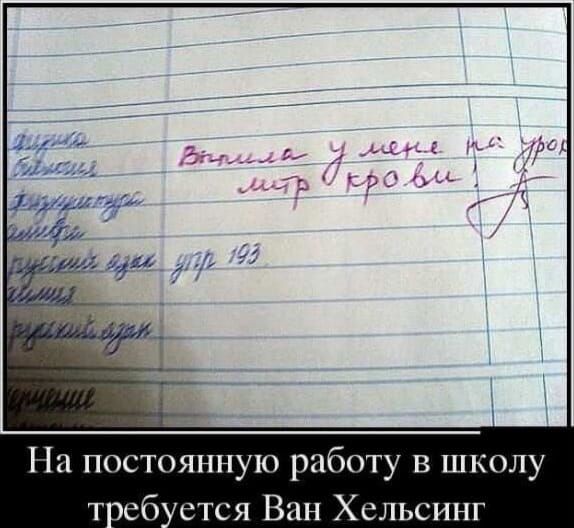 физика
биология
Выпила у меня на урок
литр крови!
физкультура
алгебра
русский язык упр 193
химия
русский язык
черчение
На постоянную работу в школу
требуется Ван Хельсинг